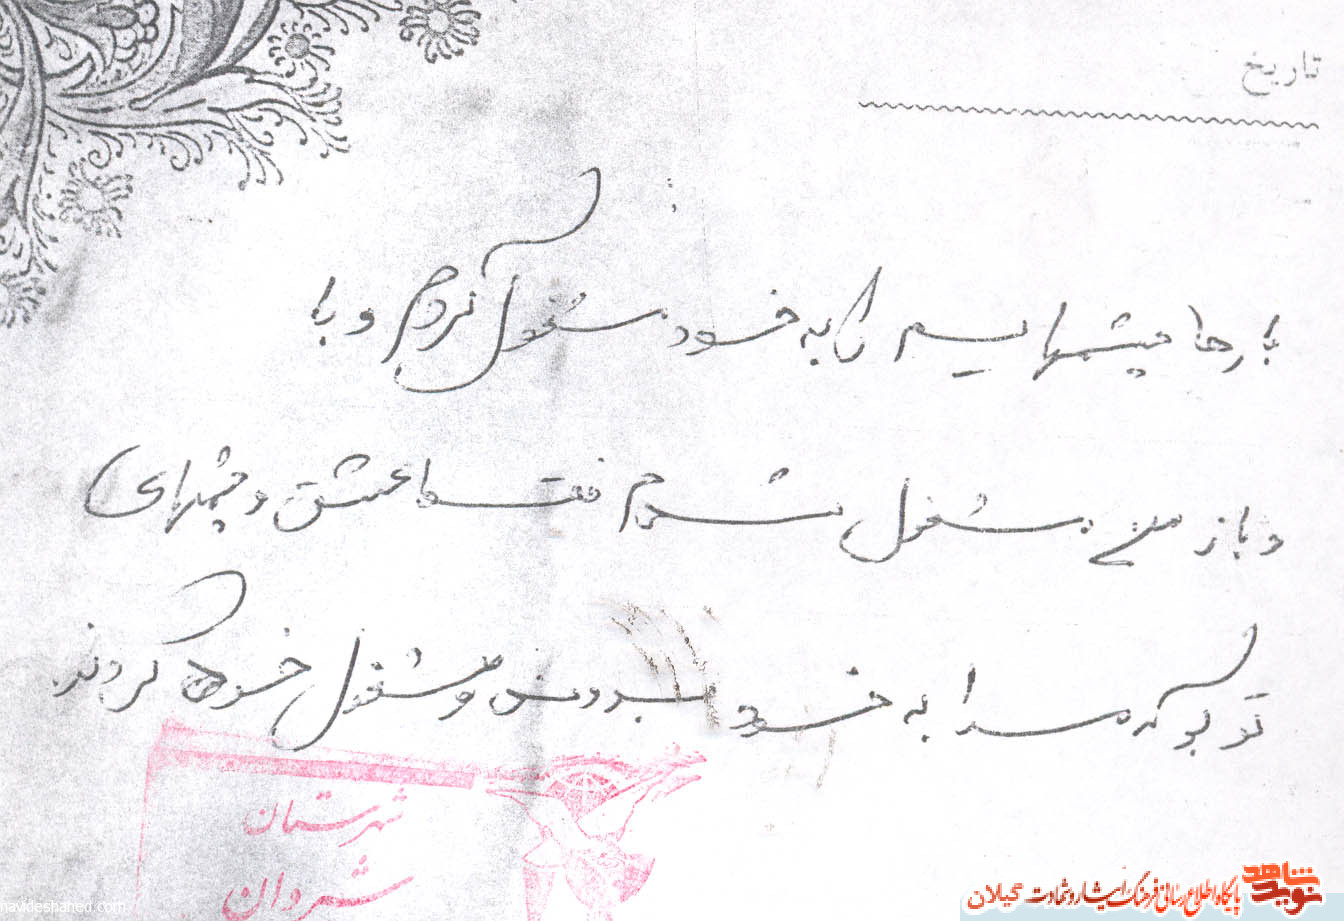 تاریخ
بارها چشمهایم را به خود مشغول کردم و با
و باز می مشغول شدم فقط عشق و چشمهای
تو بو که مرا به خود بردند و مشغول خود کردند.
شهرستان
شهر دان
شاهد
نوید
پایگاه اطلاع رسانی فرهنگ ایثار و شهادت گیلان
navideshahed.com